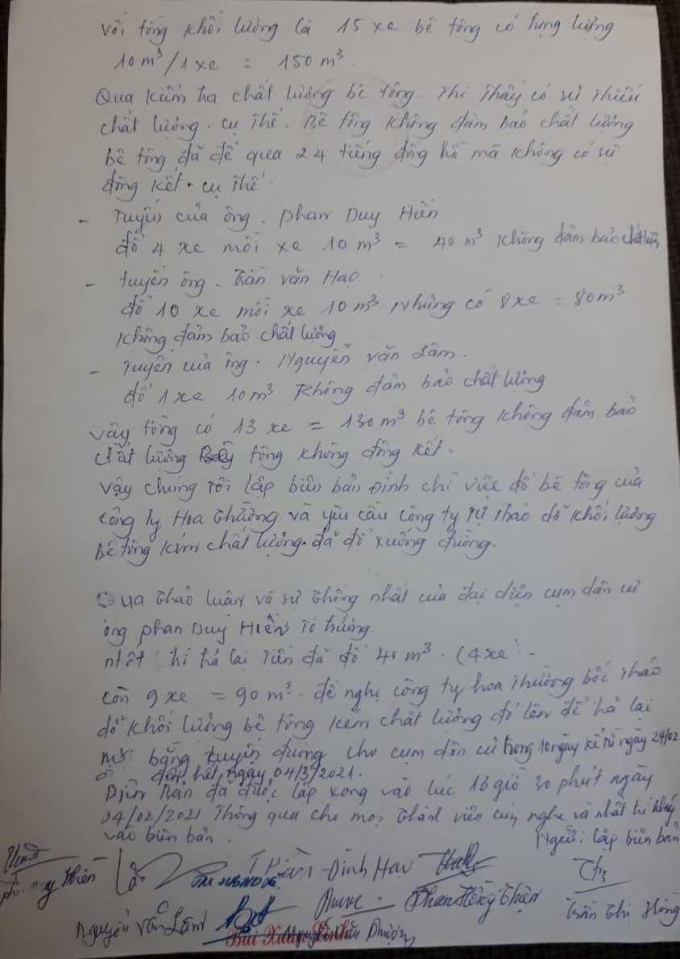 với tổng khối lượng là 15 xe bê tông có trọng lượng
10 m³/1 xe = 150 m³.
Qua kiểm tra chất lượng bê tông. Thì thấy có sự thiếu
chất lượng. cụ thể. Bê tông không đảm bảo chất lượng
bê tông đã để qua 24 tiếng đồng hồ mà không có sự
đông kết. cụ thể
- Tuyến của ông. Phan Duy Hiền
đổ 4 xe mỗi xe 10 m³ = 40 m³ không đảm bảo chất lượng
- Tuyến ông. Trần Văn Hao
đổ 10 xe mỗi xe 10 m³ Nhưng có 8 xe = 80 m³
không đảm bảo chất lượng
- Tuyến của ông. Nguyễn Văn Lâm.
đổ 1 xe 10 m³ Không đảm bảo chất lượng
vậy tổng có 13 xe = 130 m³ bê tông không đảm bảo
chất lượng tông không đông kết.
vậy chúng tôi lập biên bản Đình chỉ việc đổ bê tông của
công ty Hoa Thường và yêu cầu công ty tự tháo dỡ khối lượng
bê tông kém chất lượng. đã đổ xuống đường.
Qua thảo luận và sự thống nhất của đại diện cụm dân cư
ông Phan Duy Hiền Tổ trưởng.
nhất trí trả lại tiền đã đổ 40 m³. (4 xe
còn 9 xe = 90 m³. đề nghị công ty hoa Thường bốc tháo
dỡ khối lượng bê tông kém chất lượng đó lên để trả lại
bằng tuyến đường cho cụm dân cư trong 10 ngày kể từ ngày 24/02
đến hết ngày 04/3/2021.
Biên bản đã được lập xong vào lúc 16 giờ 30 phút ngày
24/02/2021 Thông qua cho mọi thành viên cùng nghe và nhất trí
vào biên bản.
Người lập biên bản
Đình Hạv
Nguyễn Văn Lâm
Phan Hồng Thiện
Trần Thị Hồng
Bùi Xuân